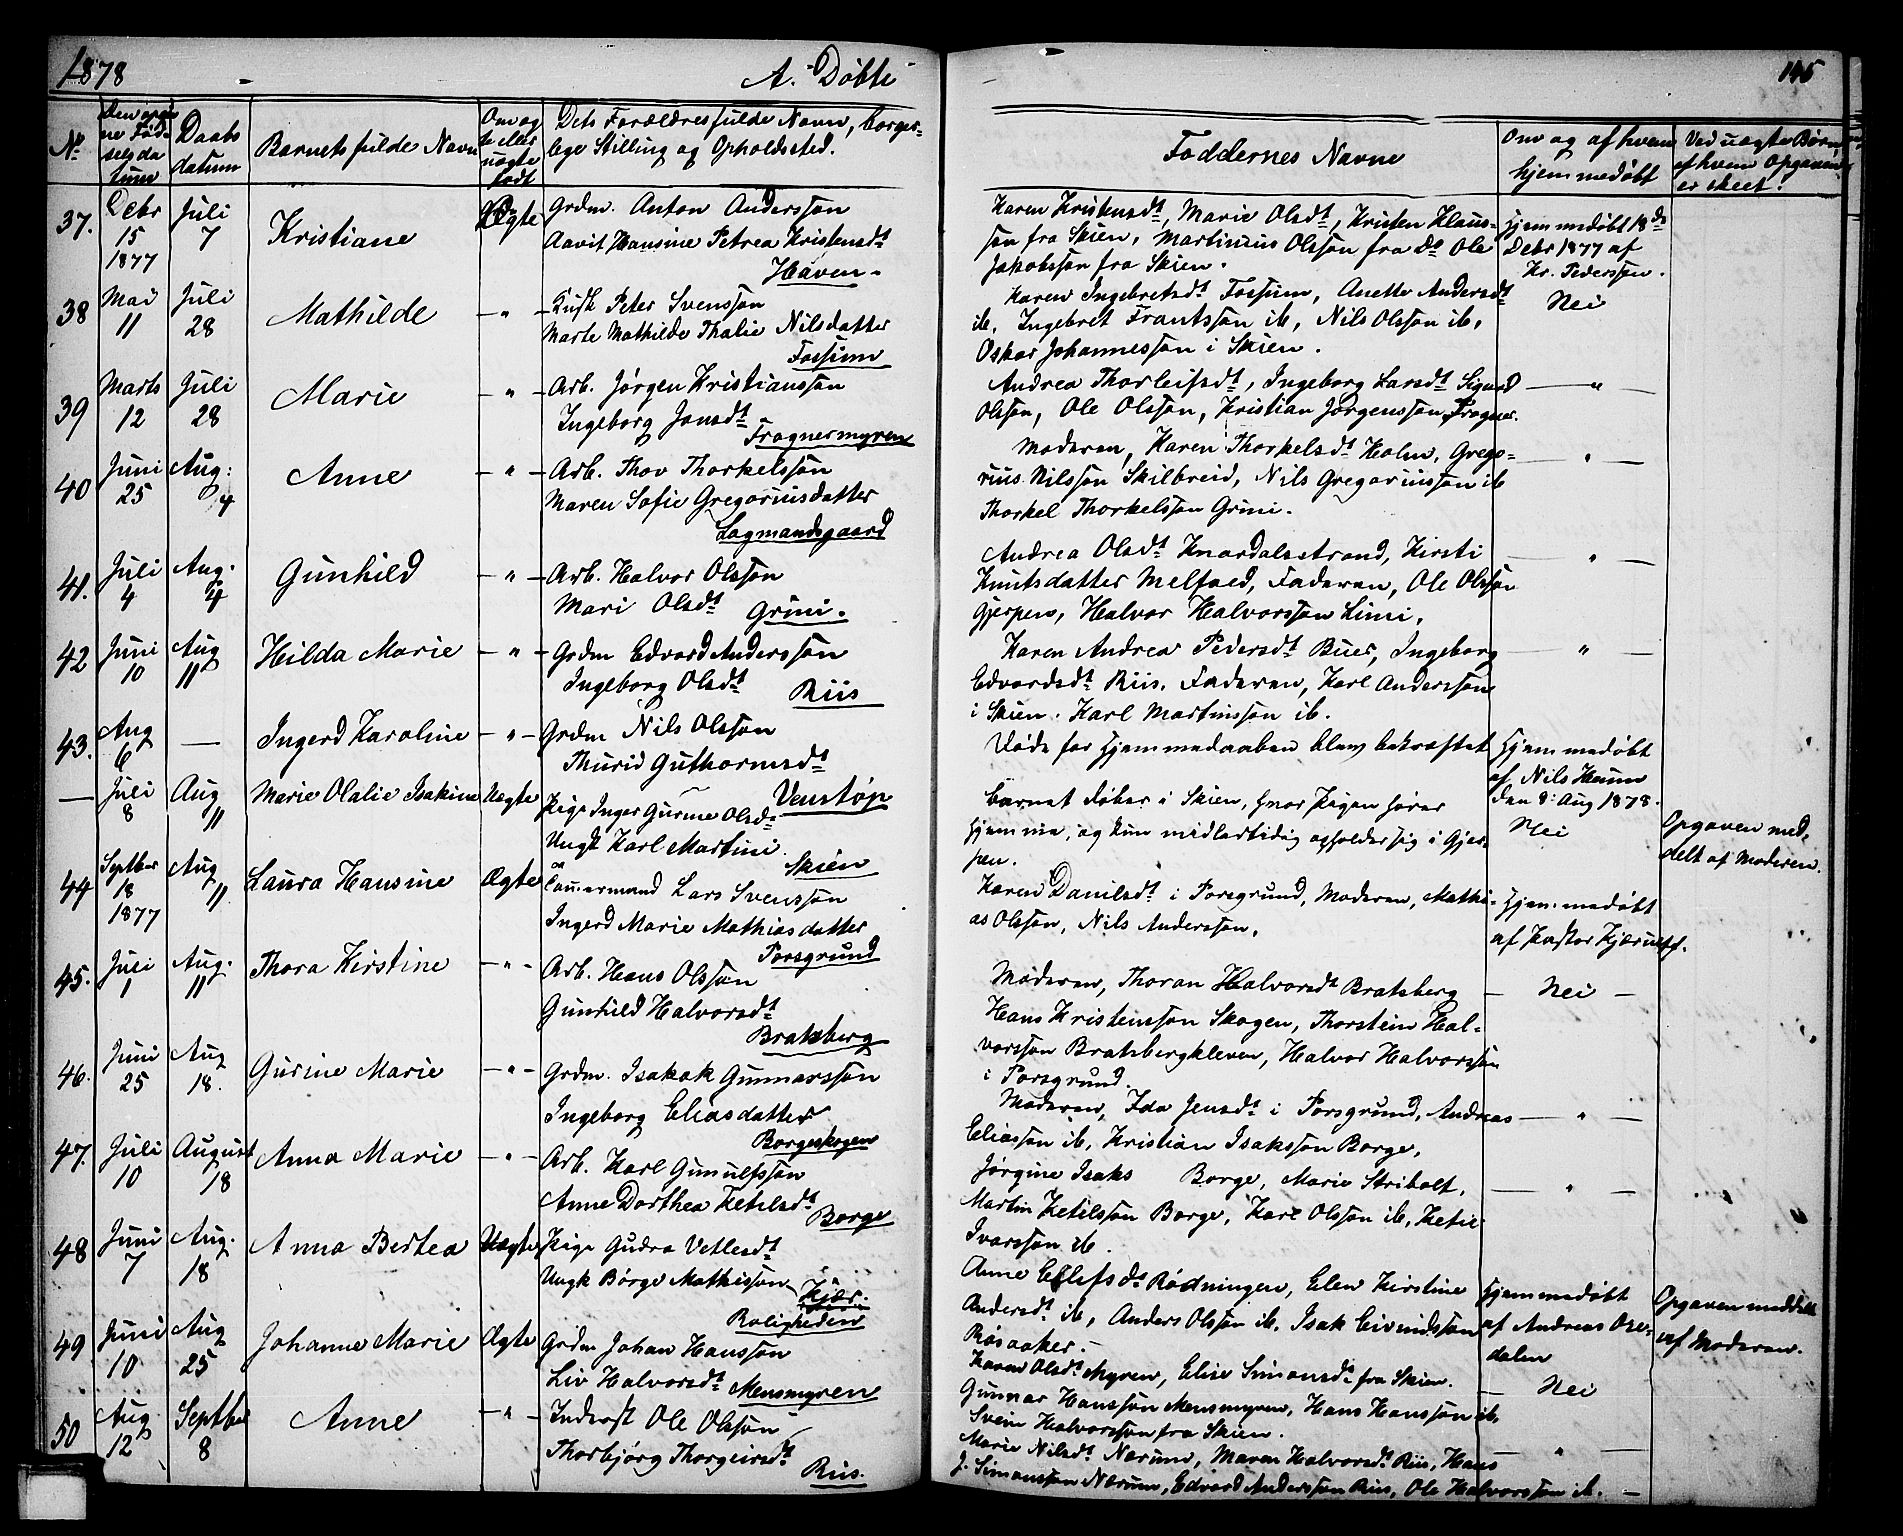 1878
A. Døbte
145
No
Den opgivne Fødselsdatum
Daabsdatum
Barnets fulde Navn
Om ægte eller uægte født
Dets Forældres fulde Navn, borgerlige Stilling og Opholdssted.
Faddernes Navne
Om og af hvem hjemmedøbt
Ved uægte Børn, af hvem Opgaven er skeet.
37. Debr 15 1877
Juli 7
Kristiane
Ægte
Grdm. Anton Anderssøn
Hansine Petrea Kristensdt
Haven
Karen Kristensdt, Marie Olsdt, Kristen Klaus-
søn fra Skien, Martinius Olssøn fra Do Ole
Jakobssøn fra Skien.
Hjemmedøbt 18de
Debr 1877 af
Kr. Pederssøn.
38 Mai 11
Juli 28
Mathilde
— " —
Husm Peter Svenssøn
Marte Mathilde Thalie Nilsdatter
Fossum
Karen Ingebretsdt Fossum, Anette Andersdt
ib, Ingebret Frantssøn ib, Nils Olssøn ib,
Oskar Johannessøn i Skien.
Nei
39 Marts 12
Juli 28
Marie
— " —
Arb. Jørgen Kristianssøn
Ingeborg Jonsdt
Frognermyren
Andrea Thorleifsdt, Ingeborg Larsdt Sigurd
Olssøn, Ole Olssøn, Kristian Jørgenssøn Frogner.
— " —
40 Juni 25
Aug: 4
Anne
— " —
Arb. Thov Thorkelssøn
Maren Sofie Gregoriusdatter
Lagmandsgaard
Moderen, Karen Thorkelsdt Holm, Grego-
rius Nilssøn Skilbreid, Nils Gregoriussøn ib
Thorkel Thorkelssøn Grini.
— " —
41. Juli 4
Aug. 4
Gunhild
— " —
Arb. Halvor Olssøn
Mari Olsdt
Grini.
Andrea Olsdt Knardalsstrand, Kirsti
Knutsdatter Melfald, Faderen, Ole Olssøn
Gjerpen, Halvor Halvorssøn Limi.
— " —
42 Juni 10
Aug 11
Hilda Marie
— " —
Grdm Edvard Anderssøn
Ingeborg Olsdt
Riis
Karen Andrea Pedersdt Buer, Ingeborg
Edvardsdt Riis. Faderen, Karl Anderssøn
i Skien. Karl Martinssøn ib.
— " —
43. Aug 6
—
Ingerd Karoline
— " —
Grdm Nils Olssøn
Thurid Guthormsdt
Venstøp
Døde før Hjemmedaaben blev bekræftet
Hjemmedøbt
af Nils Haum
den 8: Aug 1878.
— Juli 8
Aug 11
Marie Olalie Isakine
Uægte
Pige Inger Gurine Olsdt
Ungk Karl Martini
Skien
Barnet døbes i Skien, hvor Pigen hører
hjemme, og kun midlertidig opholder sig i Gjer-
pen.
Nei
Opgaven med-
delt af Moderen.
44 Septber 18 1877
Aug 11
Laura Hansine
Ægte
Tømmermand Lars Svenssøn
Ingerd Marie Mathiasdatter
Porsgrund
Karen Danilsdt i Porsgrund, Moderen, Mathi-
as Olssøn, Nils Anderssøn.
Hjemmedøbt
af Pastor Kjerulf.
45. Juli 1
Aug. 11
Thora Kirstine
— " —
Arb. Hans Olssøn
Gunhild Halvorsdt
Bratsberg
Moderen, Thoran Halvorsdt Bratsberg
Hans Kristenssøn Skogen, Thorstein Hal-
vorssøn Bratsbergkleven, Halvor Halvorssøn
i Porsgrund.
— Nei —
46. Juni 25
Aug 18.
Gurine Marie
— " —
Grdm. Isakak Gunnarssøn
Ingeborg Eliasdatter
Borgeskogen
Moderen, Ida Jensdt i Porsgrund, Andreas
Eliassøn ib, Kristian Isakssøn Borge,
— " —
47. Juli 10
August 18
Anna Marie
— " —
Arb. Karl Gunulfssøn
Anne Dorthea Ketilsdt
Borge
Jørgine Isaks Borge, Marie Stribolt,
Martin Ketilssøn Borge, Karl Olssøn ib, Ketil
Ivarssøn ib.
— " —
48 Juni 7
Aug. 18
Anna Bertea
Uægte
Pige Gudra Vetlesdt
Ungk Børge Mathissøn
Kjær.
Roligheden
Anne Elefsdt Rødningen, Elen Kirstine
Andersdt ib, Anders Olssøn ib, Isak Eivindssøn
Røsaaker.
Hjemmedøbt
af Andreas Ore-
dalen
Opgaven meddelt
af Moderen.
49 Juni 10
Aug 25
Johanne Marie
Ægte
Grdm Johan Hanssøn
Liv Halvorsdt
Mensmyren
Karen Olsdt Myren, Elise Simonsdt fra Skien.
Gunnar Hanssøn Mensmyren, Hans Hanssøn ib,
Svein Halvorssøn fra Skien.
— Nei
50 Aug. 12
Septber 8
Anne
— " —
Inderst Ole Olssøn
Thorbjørg Thorgeirsdt
Riis.
Marie Nilsdt Nærum, Maren Halvorsdt Riis, Hans
J. Simonssøn Nærum, Edvard Anderssøn Riis, Ole Halvorssøn ib.
— " —